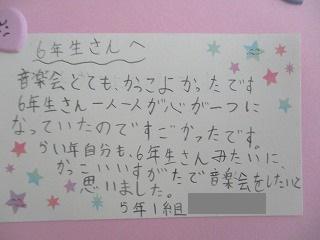 6年生さんへ
音楽会とても、かっこよかったです
6年生さん一人一人が心が一つに
なっていたのですごかったです。
らい年自分も、6年生さんみたいに、
かっこいいすがたで音楽会をしたいと
思いました。
5年1組